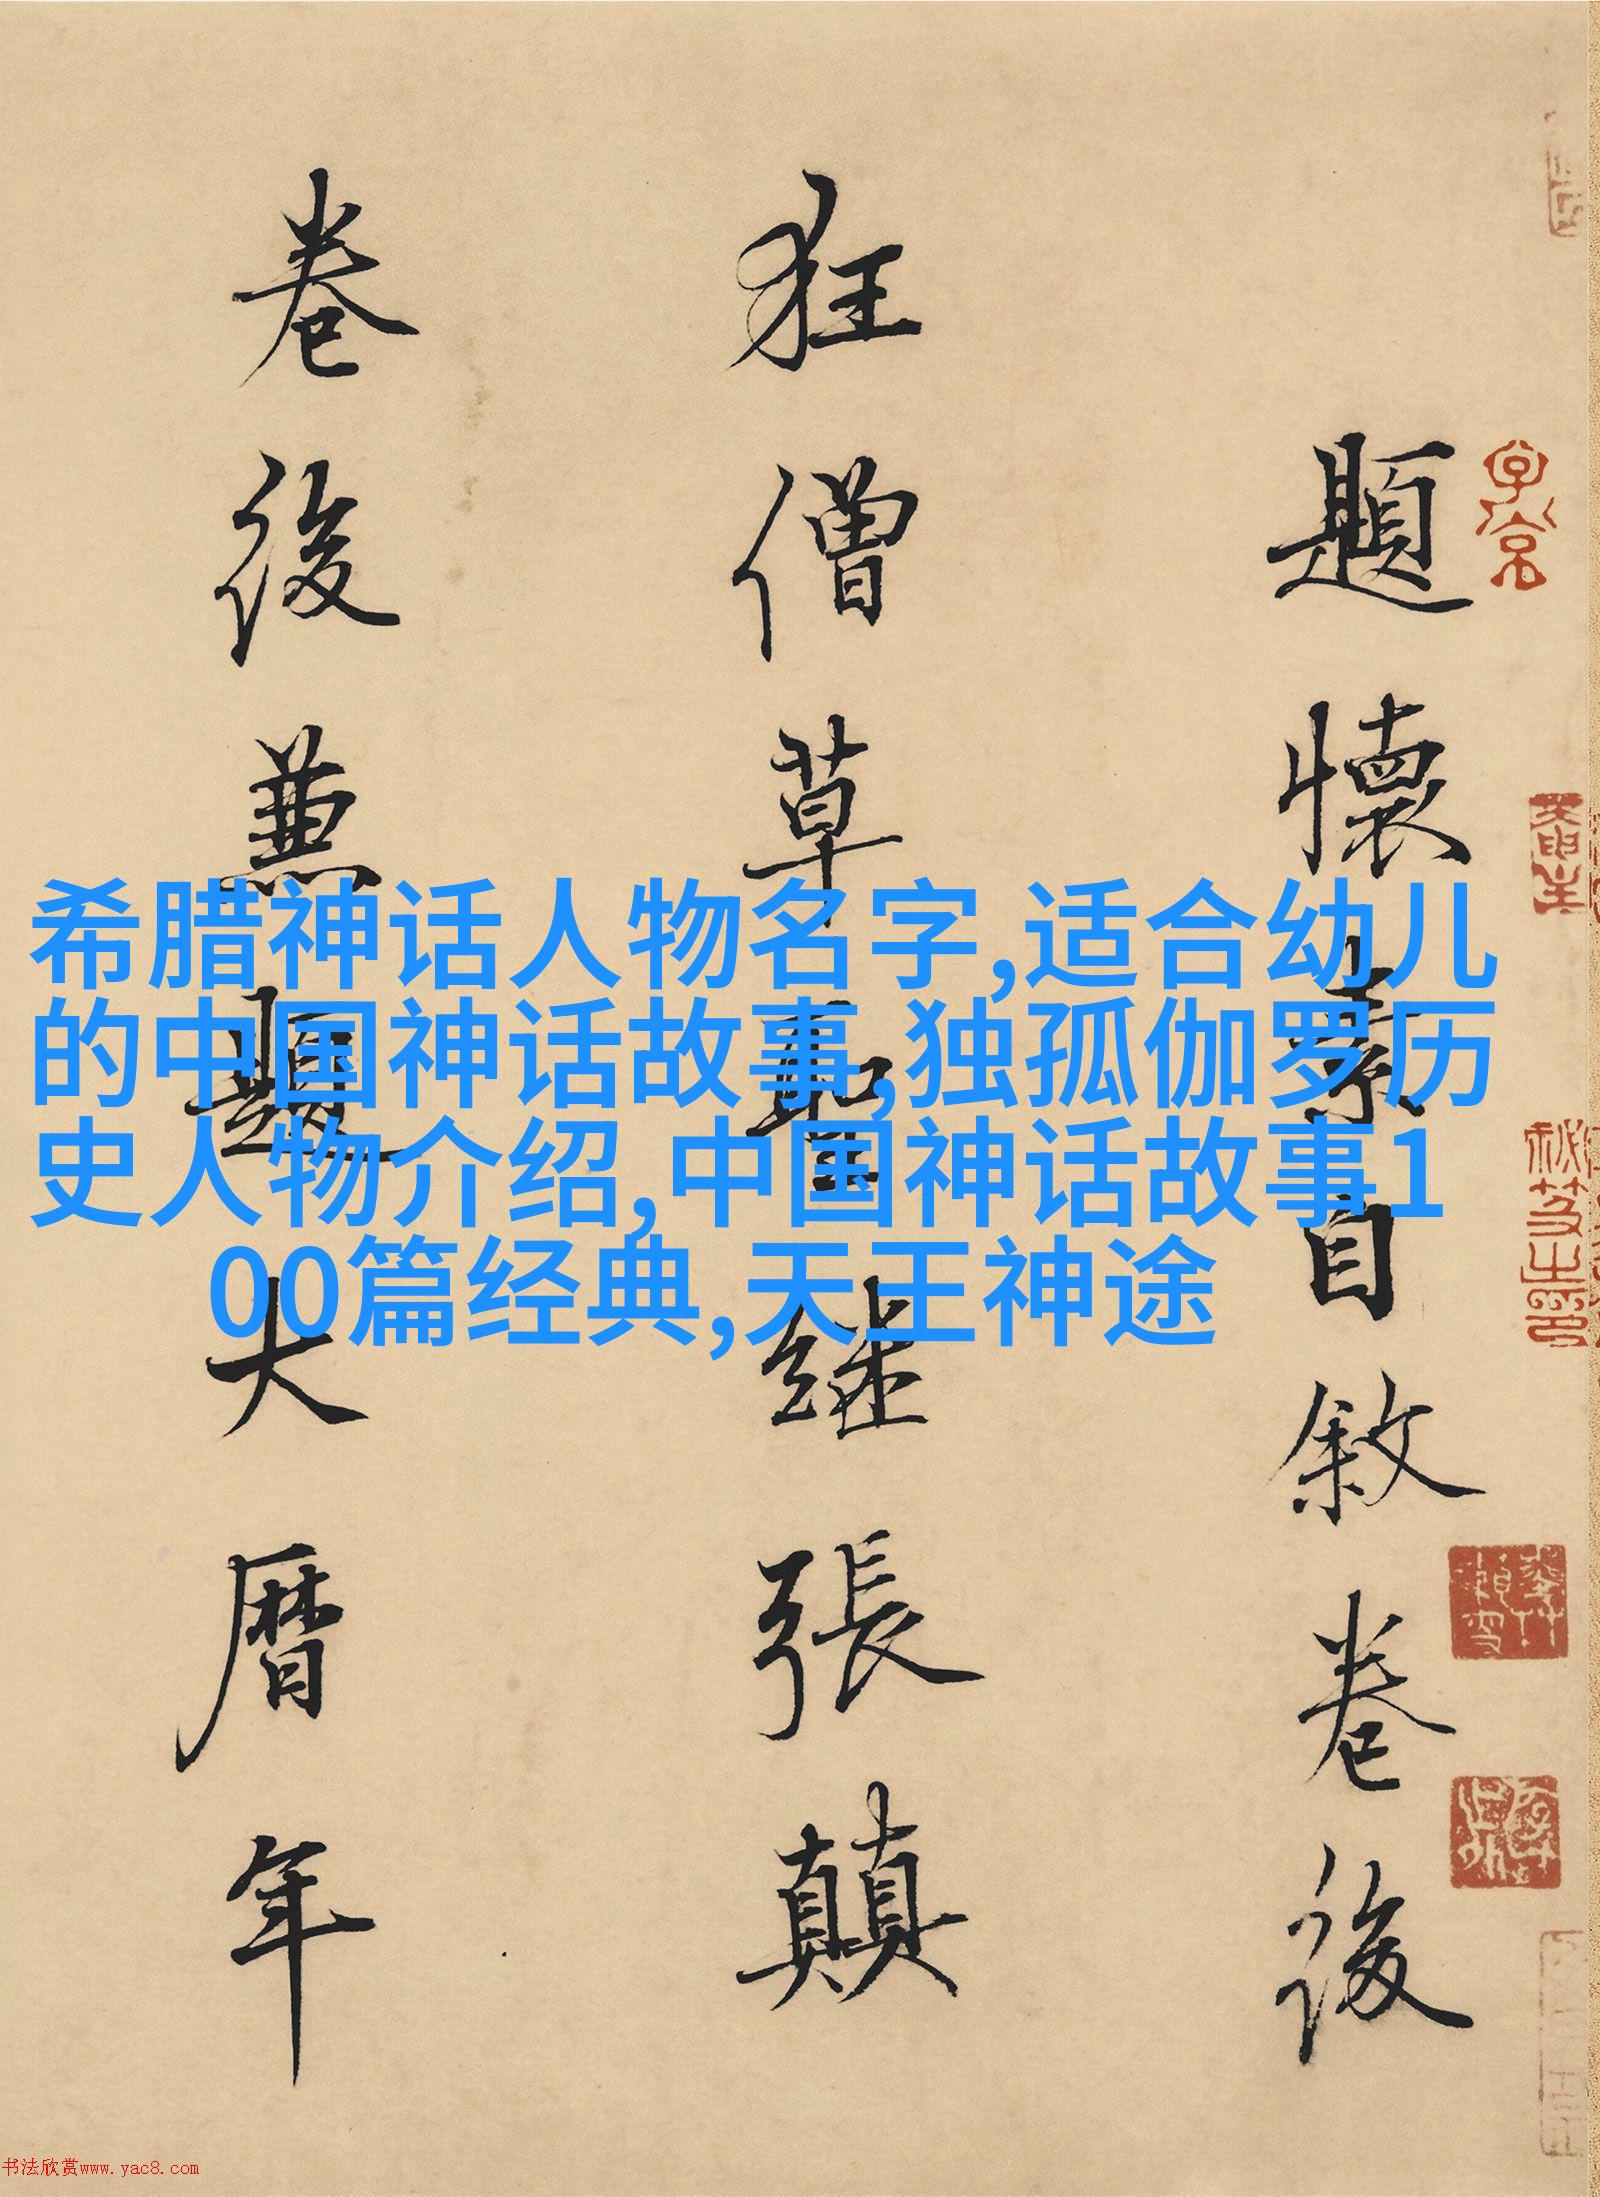 題懷素自敘卷後
狂僧草聖继張顛
卷後兼題大曆年
希腊神话人物名字,适合幼儿
的中国神话故事,独孤伽罗历
史人物介绍,中国神话故事1
00篇经典,天王神途
书法欣赏www.yac8.com